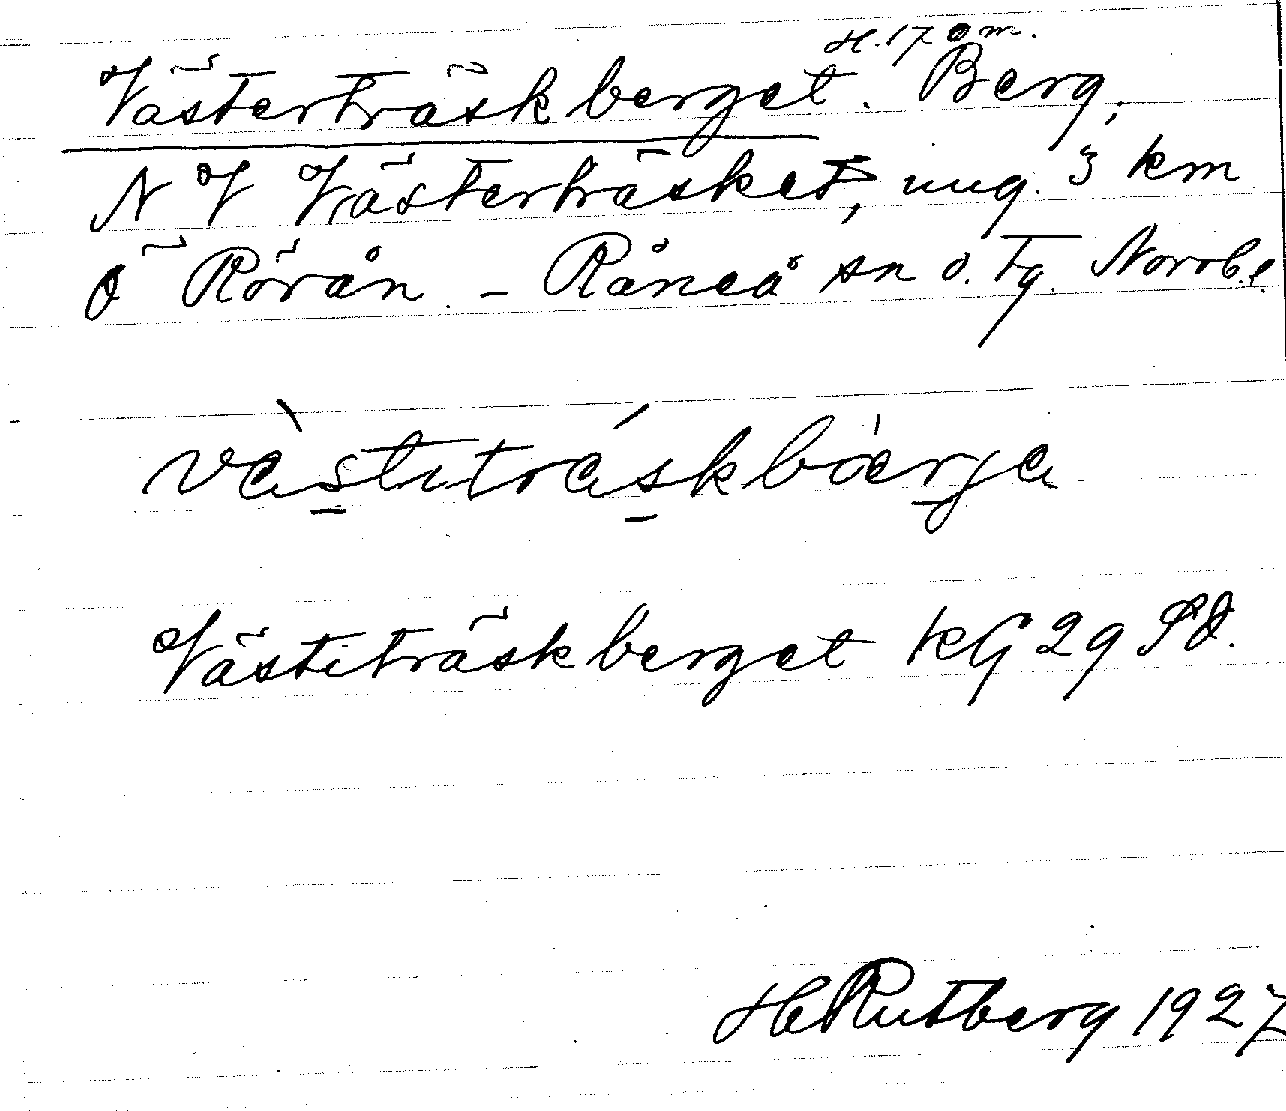 H. 170 m.
Västerträskberget. Berg,
NV Västerträsket, ung. 3 km
Ö Rörån. – Råneå sn o. Tg. Norrb.l.
vàstitráskbàrja
Västiträskberget KG 29 SO.
H Rutberg 1927